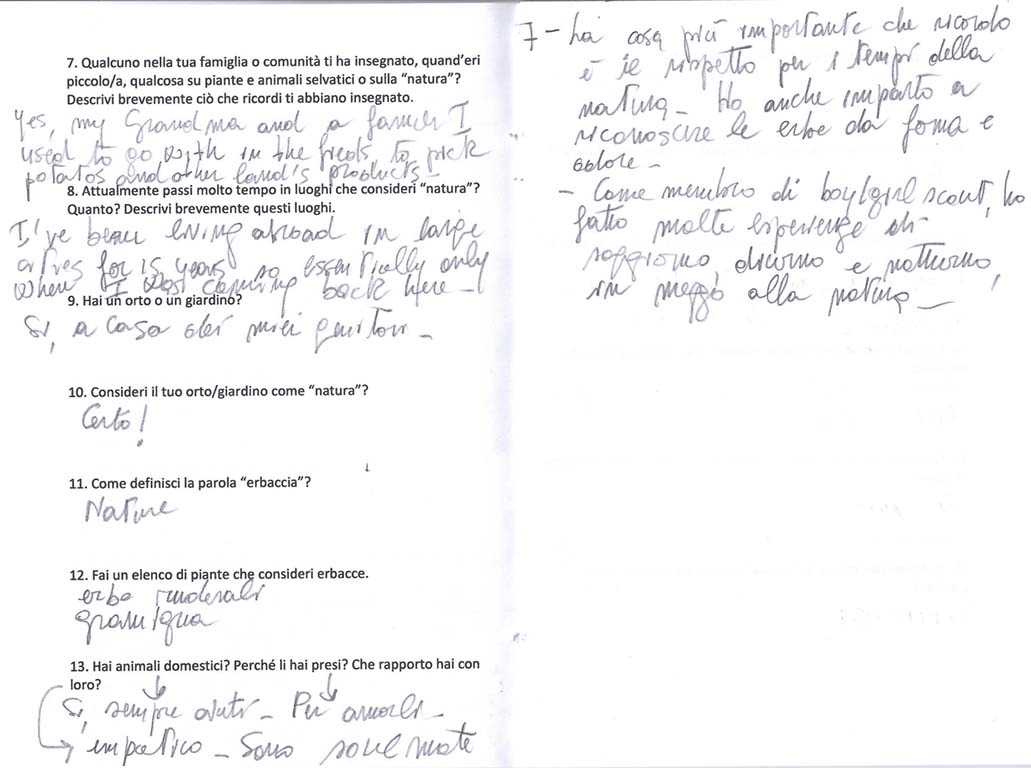 7. Qualcuno nella tua famiglia o comunità ti ha insegnato, quand'eri
piccolo/a, qualcosa su piante e animali selvatici o sulla "natura"?
Descrivi brevemente ciò che ricordi ti abbiano insegnato.
Yes, my Grandma and a farmer I
used to go with in the fields, to pick
potatos and other land's products -
8. Attualmente passi molto tempo in luoghi che consideri "natura"?
Quanto? Descrivi brevemente questi luoghi.
I've been living abroad in large
cities for 15 years, so essentially only
when I was coming back here -
9. Hai un orto o un giardino?
Si, a casa dei miei genitori -
10. Consideri il tuo orto/giardino come "natura"?
Certo!
11. Come definisci la parola "erbaccia"?
Nature
12. Fai un elenco di piante che consideri erbacce.
erbe ruderali
gramigna
13. Hai animali domestici? Perché li hai presi? Che rapporto hai con
loro?
Si, sempre avuti - Per amarli -
empatico - Sono soulmate
7 - La cosa più importante che ricordo
è il rispetto per i tempi della
natura - Ho anche imparato a
riconoscere le erbe da forma e
odore -
- Come membro di boy/girl scout, ho
fatto molte esperienze di
soggiorno, diurno e notturno,
in mezzo alla natura -